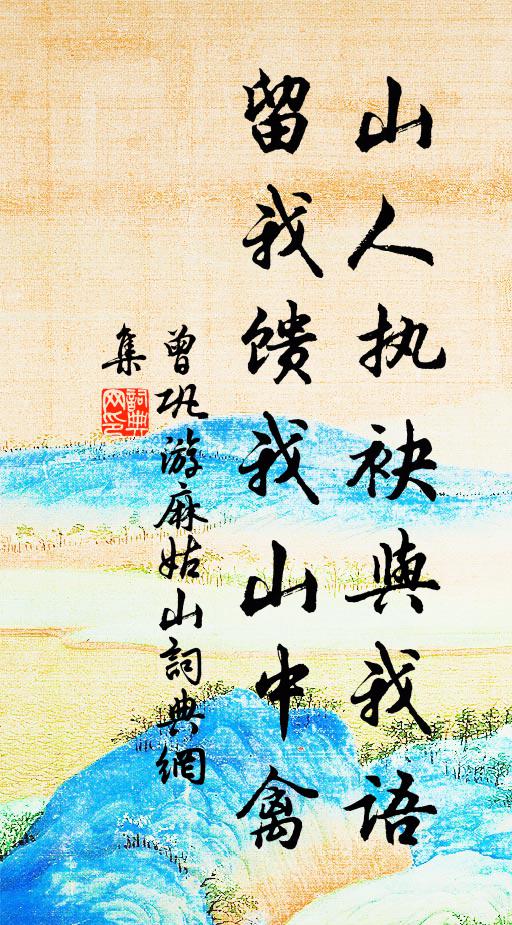 山人执袂與我语
留我馈我山中禽
曾巩游麻姑山詞典網
集
詞典
网印